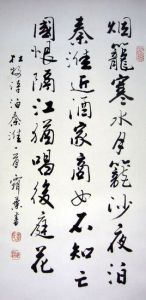 烟籠寒水月籠沙夜泊
秦淮近酒家商女不知亡
國恨隔江猶唱後庭花
杜牧詩泊秦淮一首